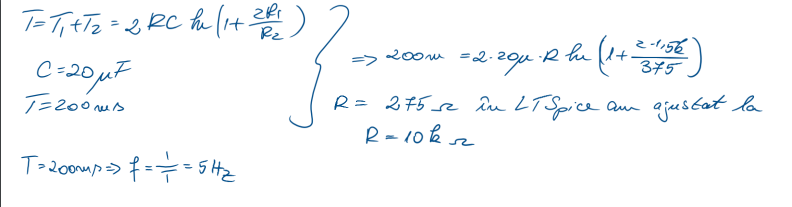 T=T₁+T₂ = 2 RC ln (1+ 2R₁/R₂)
C=20μF
T=200ms
=> 200m = 2·20μ·R ln (1+ 2·1,5k/375)
R = 275 Ω în LTSpice am ajustat la
R=10kΩ
T=200ms => f = 1/T = 5Hz